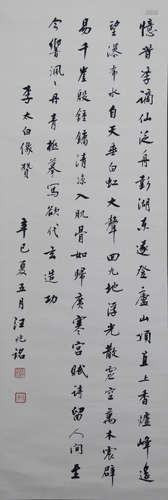 憶昔李謫仙泛舟彭湖東遂登廬山頂直上香爐峰遙
望瀑布水自天垂白虹大聲四九地浮光散雲空萬木震辟
易千崖殷鐘鏞清涼入肌骨如歸廣寒宮賦詩留人間至
今響渢渢丹青極摹寫欲代玄造功
李太白像贊
辛巳夏五月汪兆銘